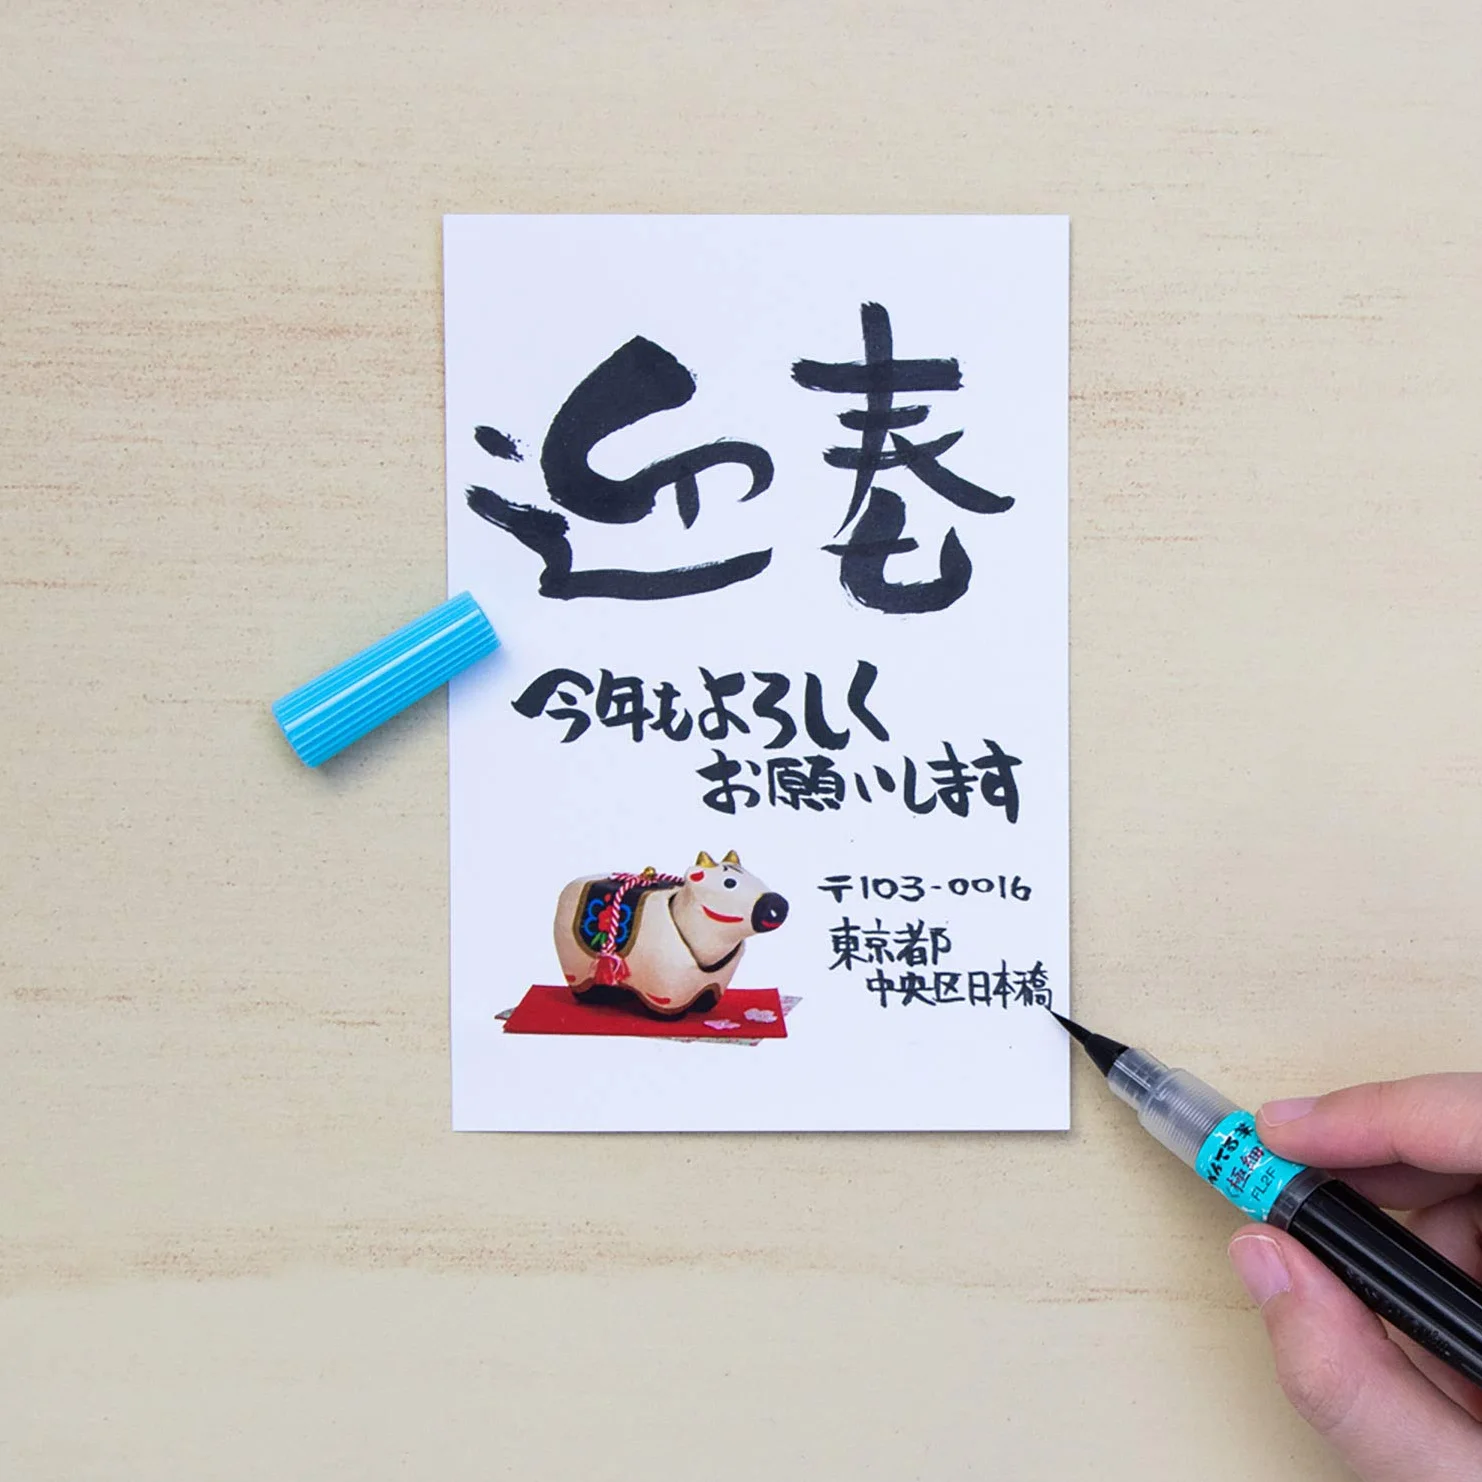 迎春
今年もよろしく
お願いします
〒103-0016
東京都
中央区日本橋
ぺんてる筆
極細
FL2F